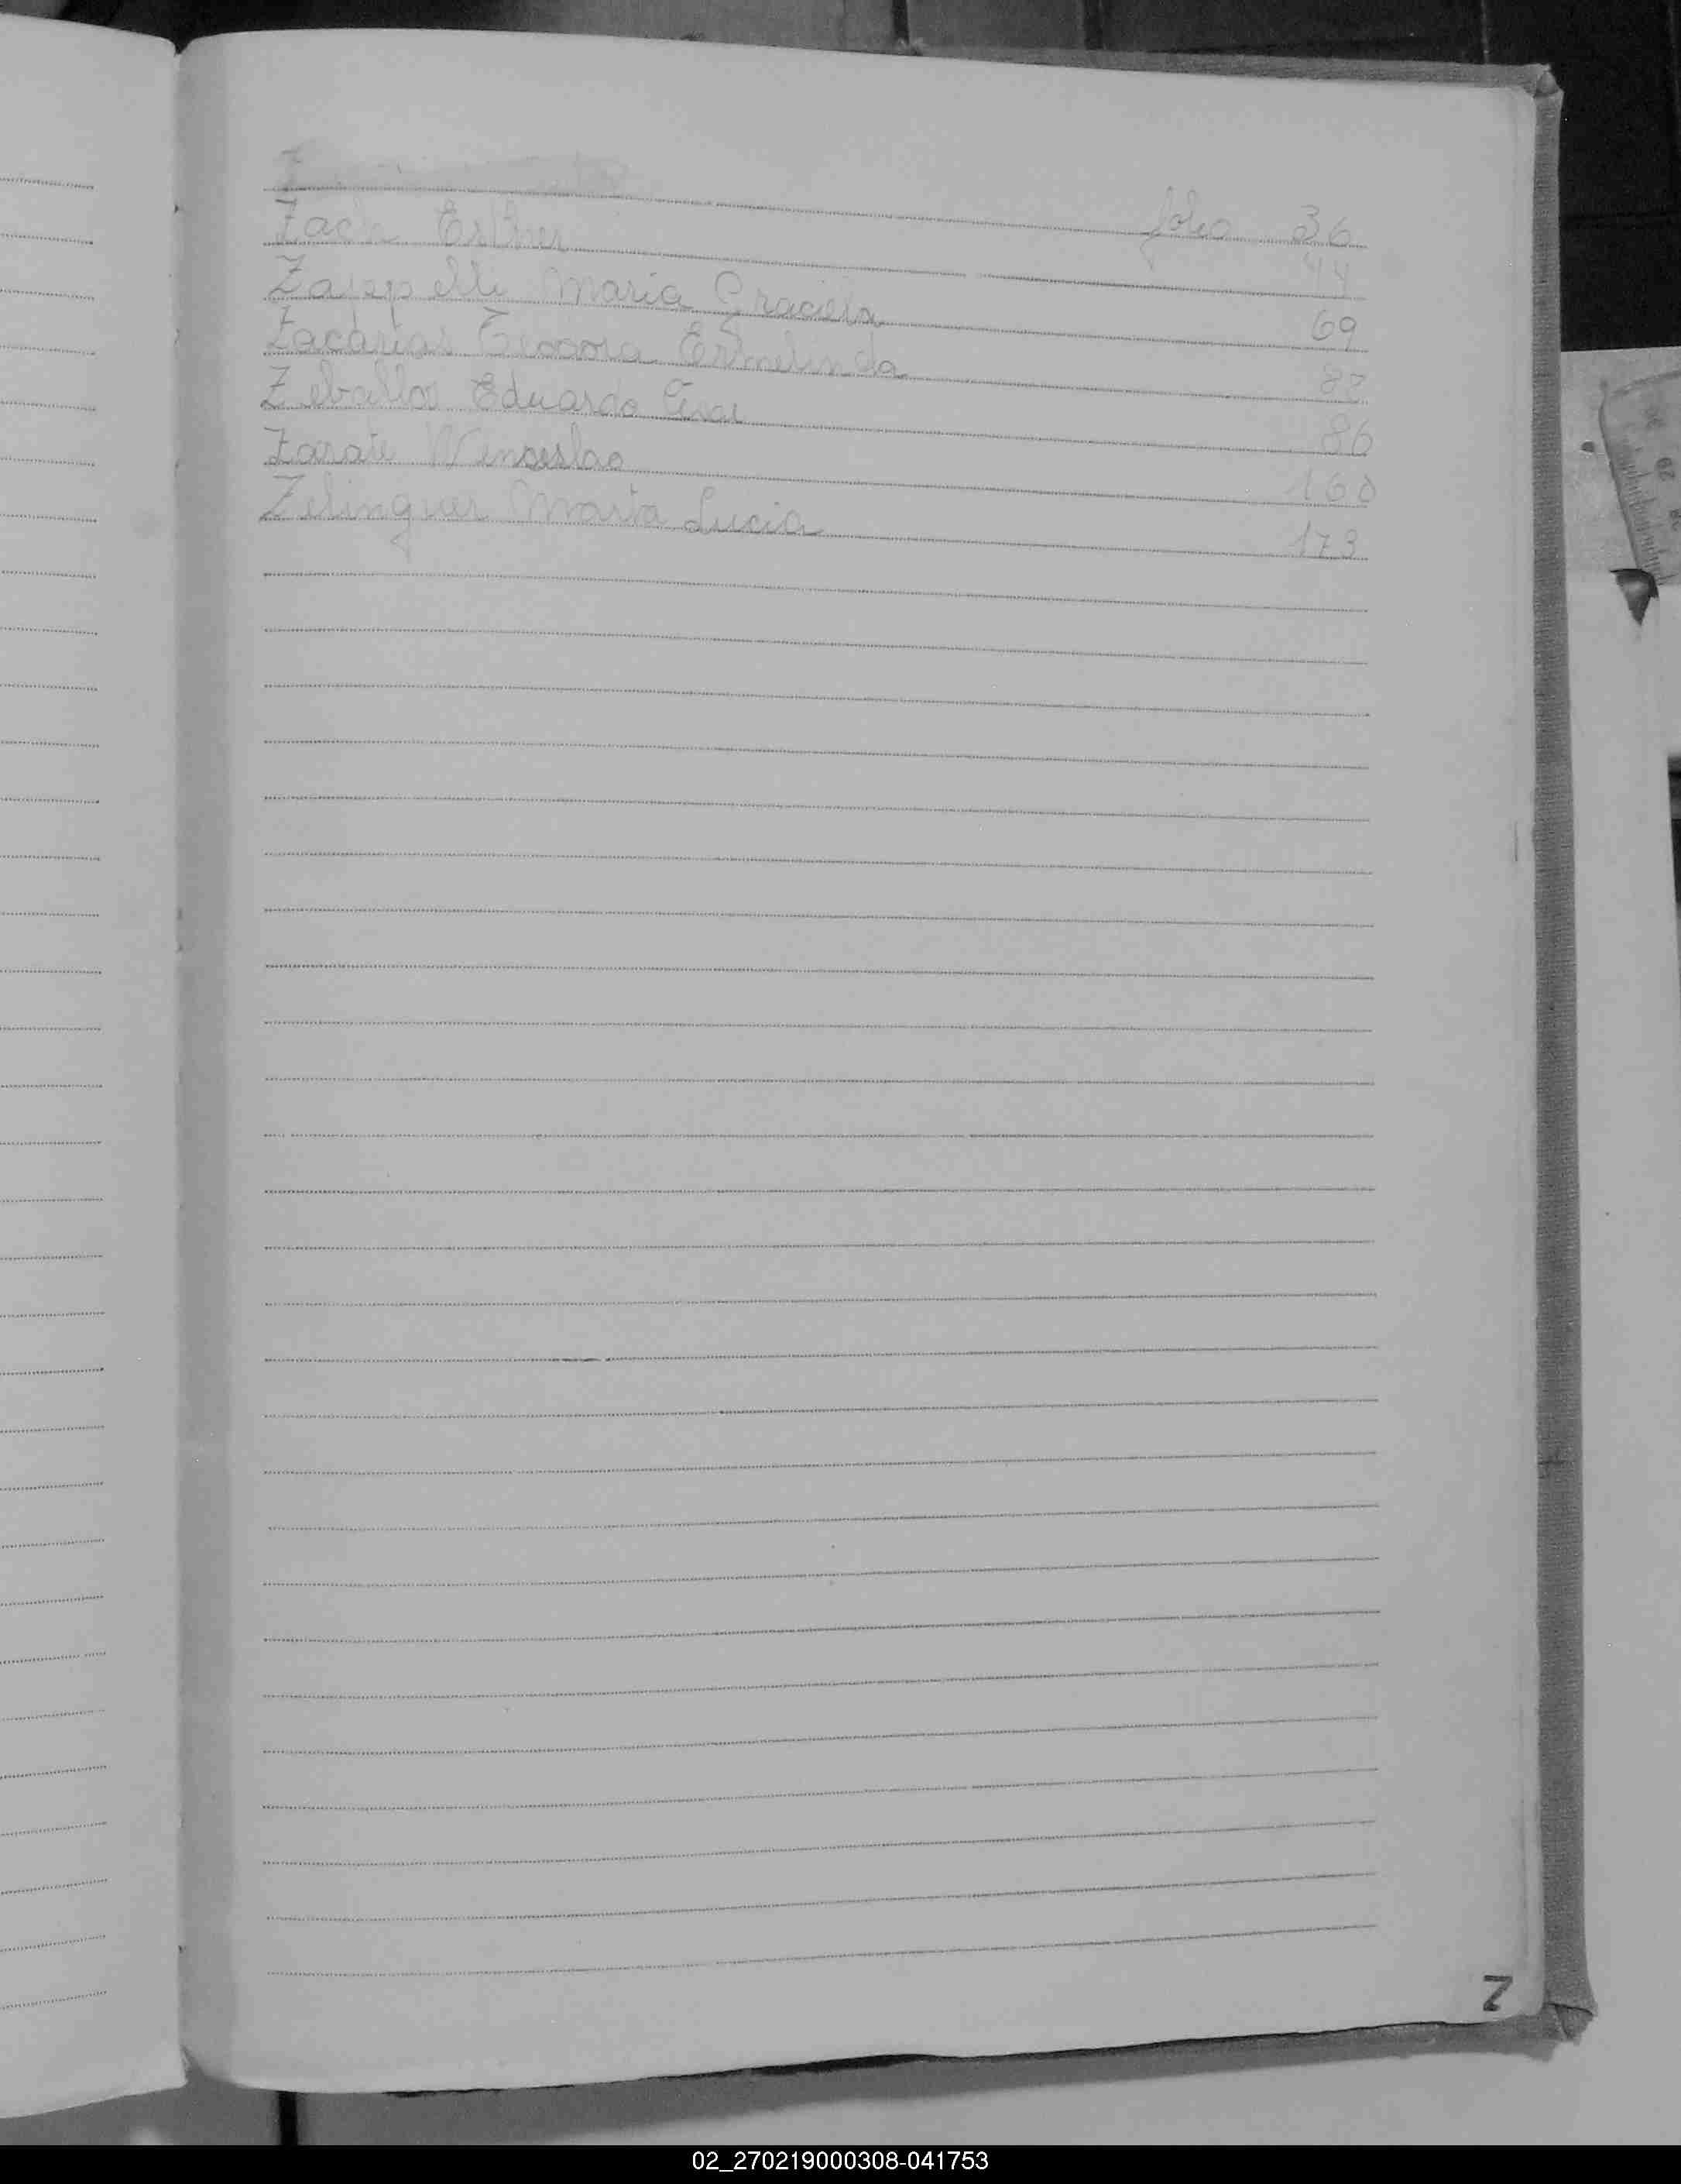 Z folio 36
Esther 44
Zappelli Maria Graciela 69
Zacarias Teodora Ermelinda
Zeballos Eduardo Cesar 86
Zarate Wenceslao 160
Zelinguer Marta Lucia 173
Z
02_270219000308-041753